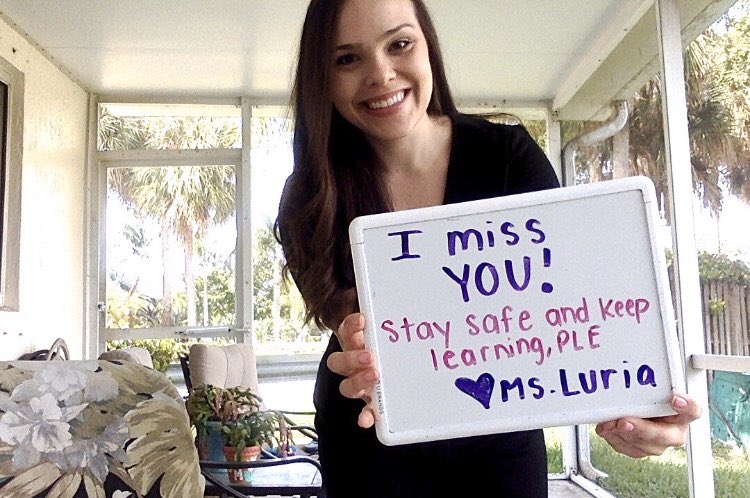 I miss
YOU!
Stay safe and keep
learning, PLE
♥ Ms. Luria